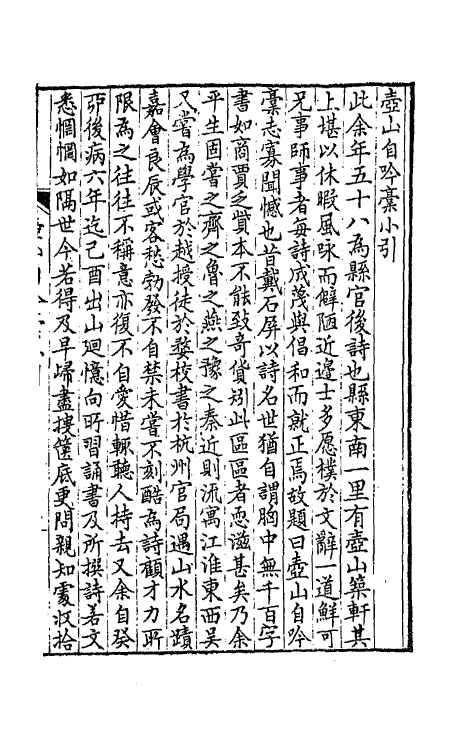 壺山自吟藁小引
此余年五十八為縣官後詩也縣東南一里有壺山築軒其
上堪以休暇風咏而鮮陋近邊士多愿樸於文辭一道鮮可
兄事師事者每詩成蔑與倡和而就正焉故題曰壺山自吟
藁志寡聞憾也昔戴石屏以詩名世猶自謂胸中無千百字
書如商賈乏貲本不能致奇貨矧此區區者恧滋甚矣乃余
平生固嘗之齊之魯之燕之豫之秦近則流寓江淮東西吳
又嘗為學官於越授徒於婺校書於杭州官局遇山水名蹟
嘉會良辰或客愁勃發不自禁未嘗不刻酷為詩顧才力所
限為之往往不稱意亦復不自愛惜輒聽人持去又余自癸
卯後病六年迄己酉出山迴憶向所習誦書及所撰詩若文
悉惘惘如隔世今若得及早歸盡搜篋底更問親知處收拾